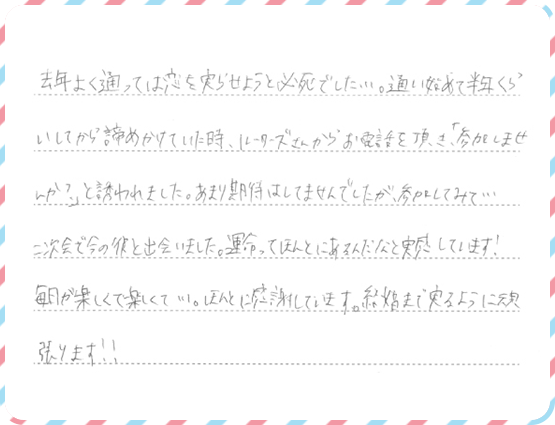 去年よく通っては恋を実らせようと必死でした…。通い始めて半年くら
いしてから諦めかけていた時、ルーターズさんからお電話を頂き、「参加しませ
んか？」と誘われました。あまり期待はしてませんでしたが、参加してみて…
二次会で今の彼と出会いました。運命ってほんとにあるんだなと実感しています！
毎日が楽しくて楽しくて…。ほんとに感謝しています。結婚まで実るように頑
張ります！！